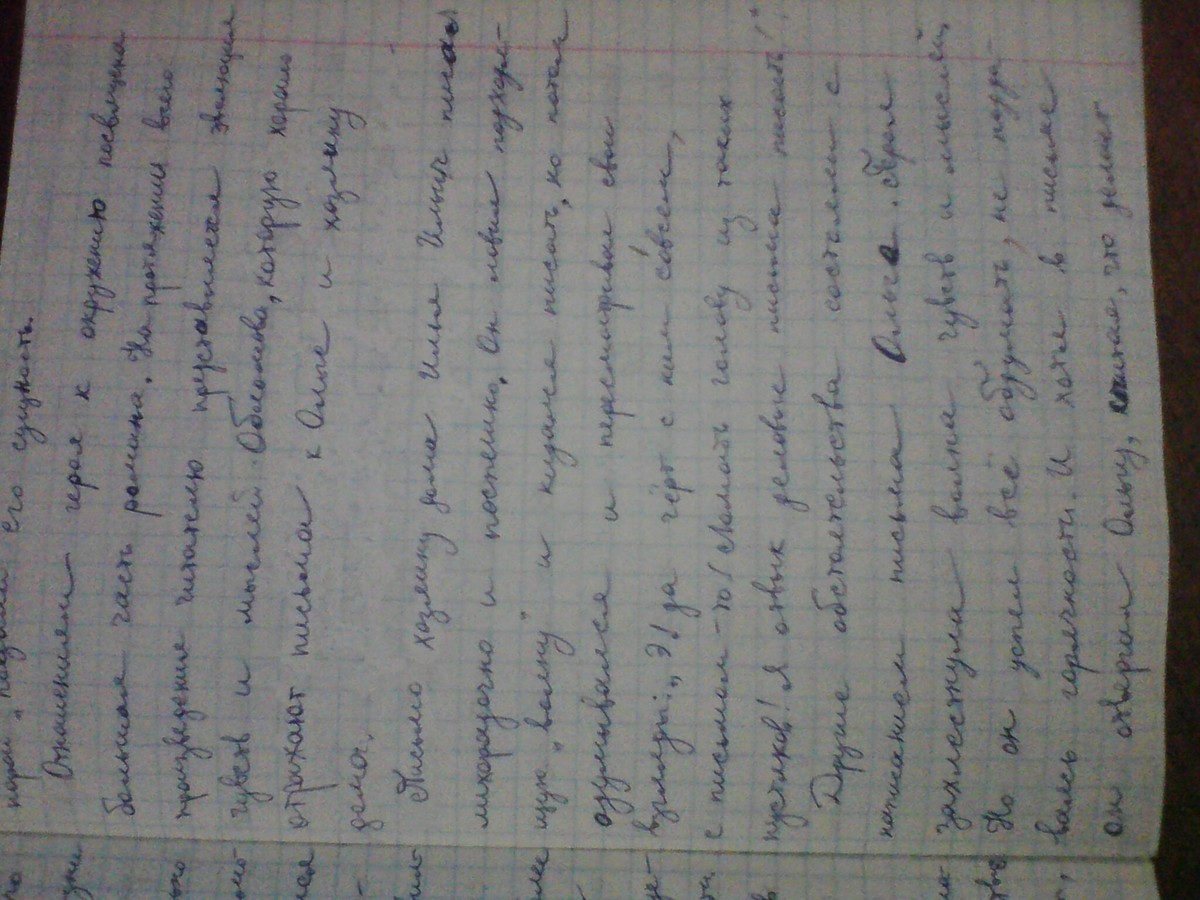 его сущность.
Отношениям героя к окружению посвящена
большая часть романа. На протяжении всего
произведение читателю представляется эволюция
чувств и мыслей Обломова, которую хорошо
отражают письма к Ольге и хозяину
дома.
Письмо хозяину дома Илья Ильич писал
лихорадочно и поспешно. Он ловил подходя-
щую „волну" и кидался писать, но потом
одумывался и пересматривал свои
взгляды: „Э! да чёрт с ним совсем,
с письмом-то! Ломать голову из таких
пустяков! Я отвык деловые письма писать!"
Другие обстоятельства состояли с
написанием письма Ольга. Героя
захлестнула волна чувств и мыслей,
Но он успел всё обдумать, не подда-
ваясь горячности. И хотя в письме
он отвергал Ольгу, считая, что делает